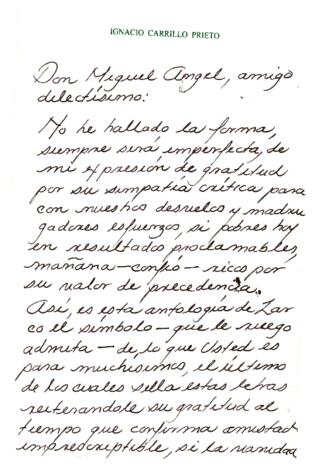 IGNACIO CARRILLO PRIETO
Don Miguel Angel, amigo
dilectísimo:
No he hallado la forma,
siempre será imperfecta, de
mi expresión de gratitud
por su simpatía crítica para
con nuestros desvelos y madru
gadores esfuerzos, si pobres hoy
en resultados proclamables,
mañana -confío- ricos por
su valor de precedencia.
Así, es esta antología de Zar
co el símbolo -que le ruego
admita- de lo que Usted es
para muchísimos, el último
de los cuales sella estas letras
reiterandole su gratitud al
tiempo que confirma amistad
imprescriptible, si la vanidad